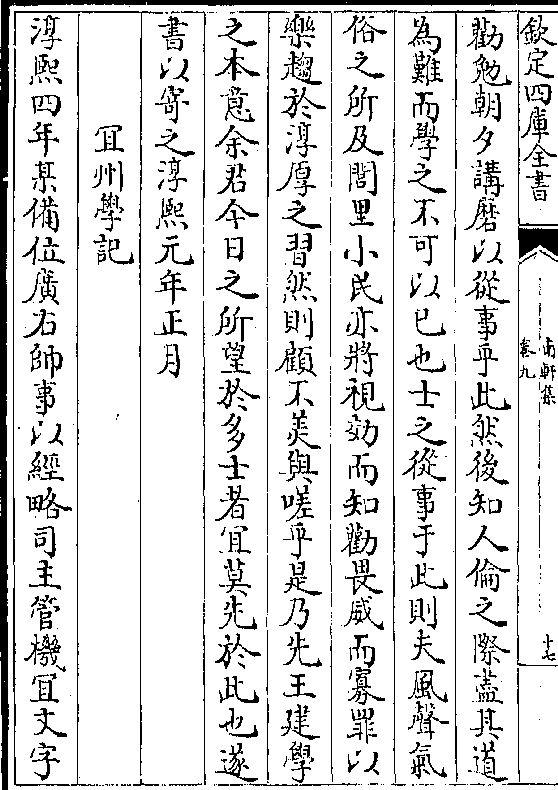 欽定四庫全書
南軒集
卷九
十七
勸勉朝夕講磨以從事乎此然後知人倫之際盡其道
為難而學之不可以已也士之從事于此則夫風聲氣
俗之所及閭里小民亦將視効而知勸畏威而寡罪以
樂趨於淳厚之習然則顧不美與嗟乎是乃先王建學
之本意余君今日之所望於多士者宜莫先於此也遂
書以寄之淳熙元年正月
宜州學記
淳熙四年某備位廣右帥事以經略司主管機宜文字